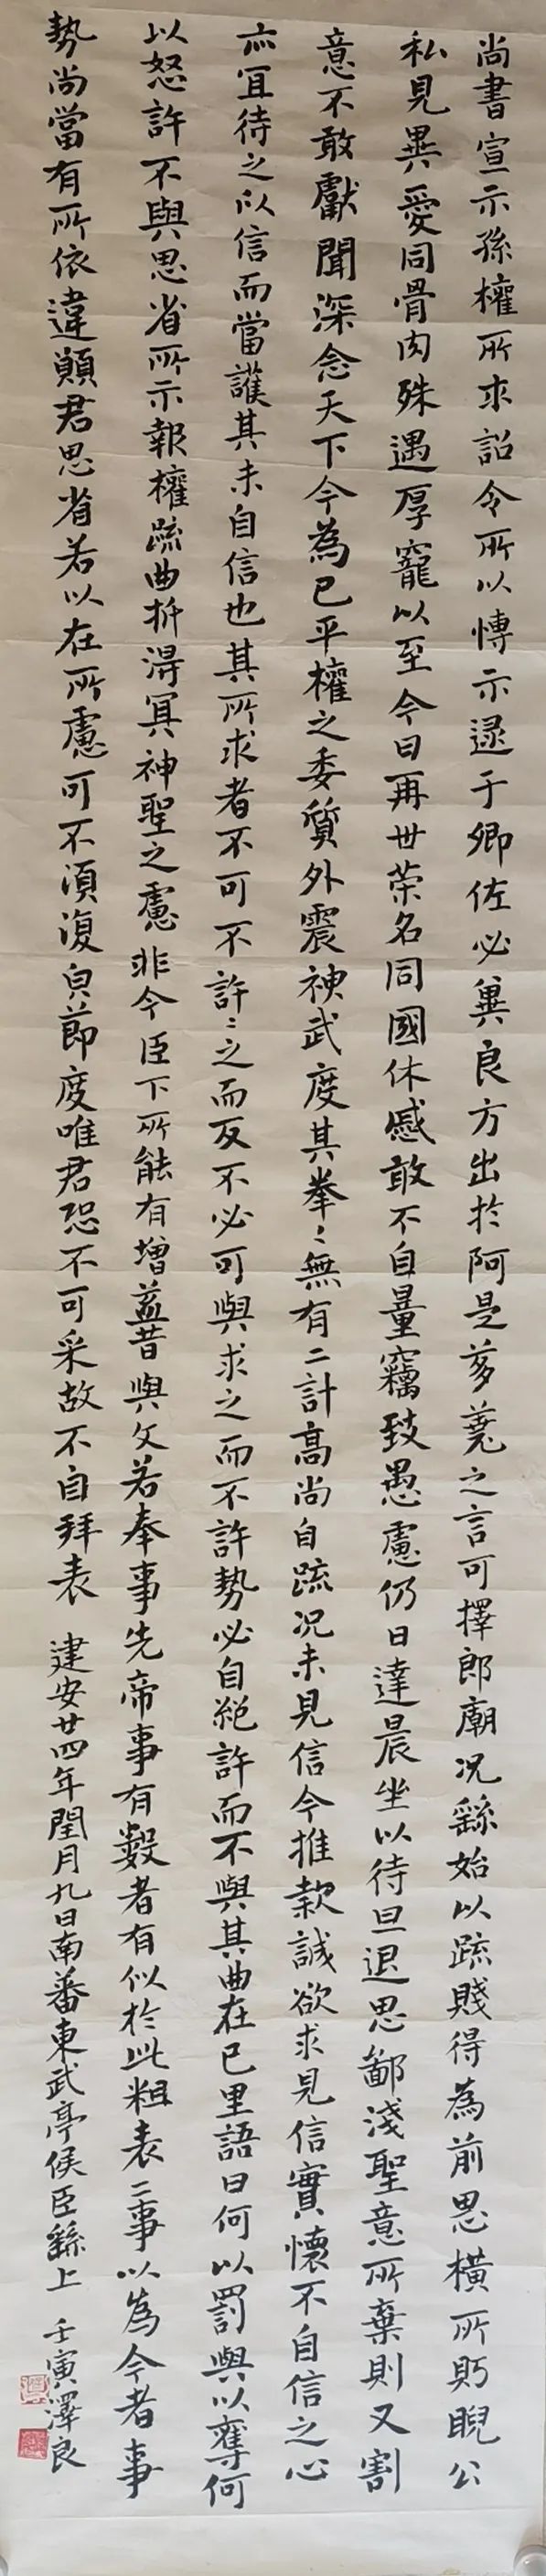 尚書宣示孫權所求詔令所以慱示逯于卿佐必冀良方出於阿是芻蕘之言可擇郎廟況繇始以疏賤得為前恩橫所眄睨公
私見異愛同骨肉殊遇厚寵以至今日再世荣名同國休慼敢不自量竊致愚慮仍日達晨坐以待旦退思鄙淺聖意所棄則又割
意不敢獻聞深念天下今為已平權之委質外震神武度其拳〻無有二計高尚自疏況未見信今推款誠欲求見信實懷不自信之心
亦宜待之以信而當護其未自信也其所求者不可不許〻之而反不必可與求之而不許勢必自絕許而不與其曲在己里語曰何以罰與以奪何
以怒許不與思省所示報權疏曲折得冥神聖之慮非今臣下所能有增益昔與文若奉事先帝事有數者有似於此粗表二事以為今者事
勢尚當有所依違願君思省若以在所慮可不須復皃節度唯君恐不可采故不自拜表 建安廿四年閏月九日南蕃東武亭侯臣繇上 壬寅澤良